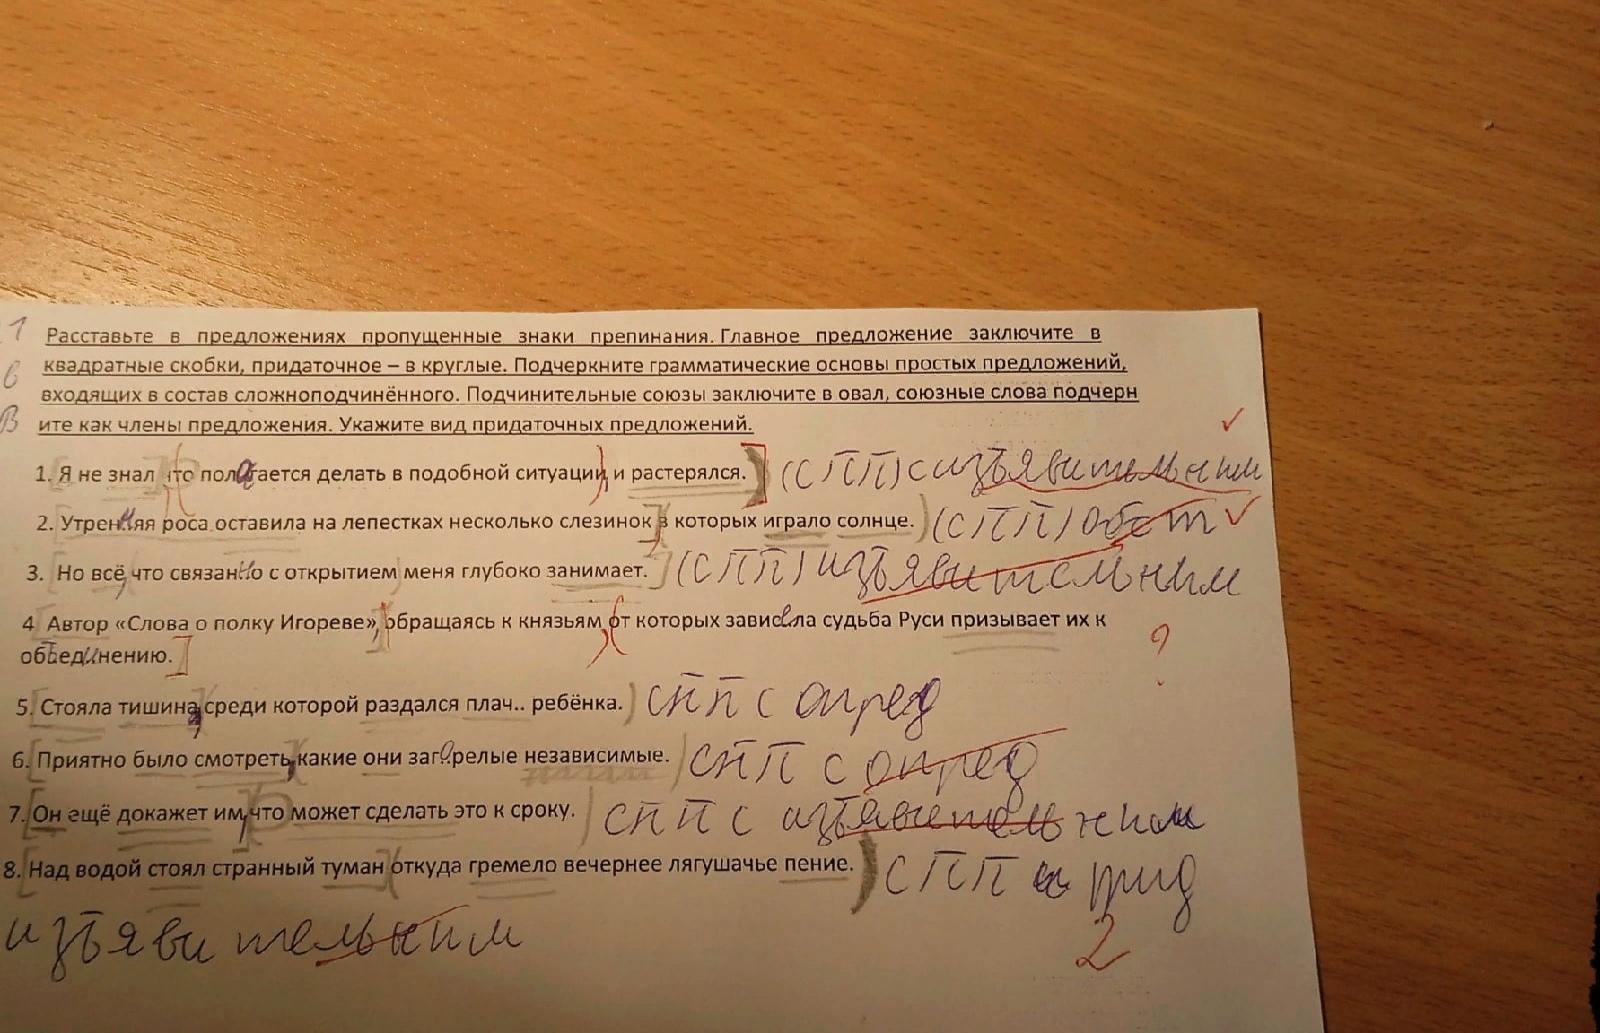 1 Расставьте в предложениях пропущенные знаки препинания. Главное предложение заключите в
в квадратные скобки, придаточное – в круглые. Подчеркните грамматические основы простых предложений,
входящих в состав сложноподчинённого. Подчинительные союзы заключите в овал, союзные слова подчерн
В ите как члены предложения. Укажите вид придаточных предложений.
1. [Я не знал (что полагается делать в подобной ситуации), и растерялся.] (СПП) с изъявительным
2. [Утренняя роса оставила на лепестках несколько слезинок], в которых играло солнце.) (СПП) обст
3. [Но всё, что связанно с открытием) меня глубоко занимает.] (СПП) изъявительным
4. [Автор «Слова о полку Игореве»,] обращаясь к князьям,) (от которых зависила судьба Руси призывает их к ?
объединению.]
5. [Стояла тишина], (среди которой раздался плач.. ребёнка.) СПП с опред
6. [Приятно было смотреть], (какие они загорелые независимые.) СПП с опред
7. [Он ещё докажет им], (что может сделать это к сроку.) СПП с изъявительным
8. [Над водой стоял странный туман] (откуда гремело вечернее лягушачье пение.) СПП с прид
изъявительным
2